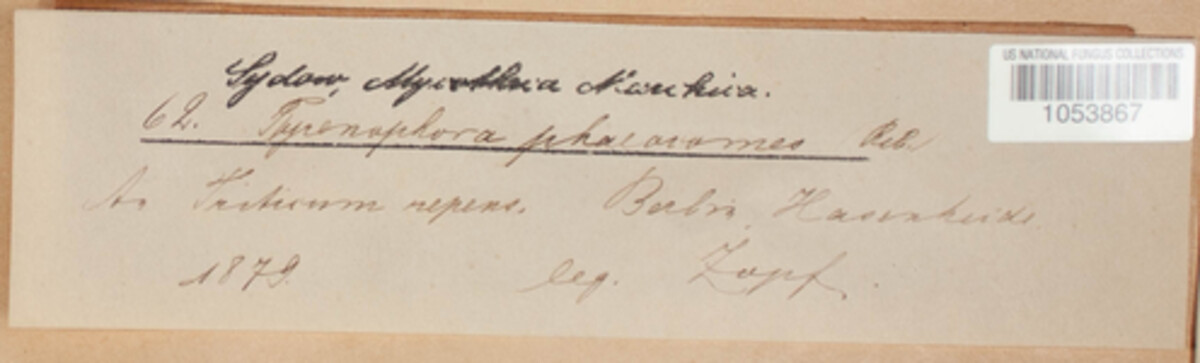 Sydow, Mycotheca Marchica.
62. Pyrenophora phaeocomes Reb.
An Triticum repens. Berlin, Hasenheide
1879. leg. Zopf.
US NATIONAL FUNGUS COLLECTIONS
1053867